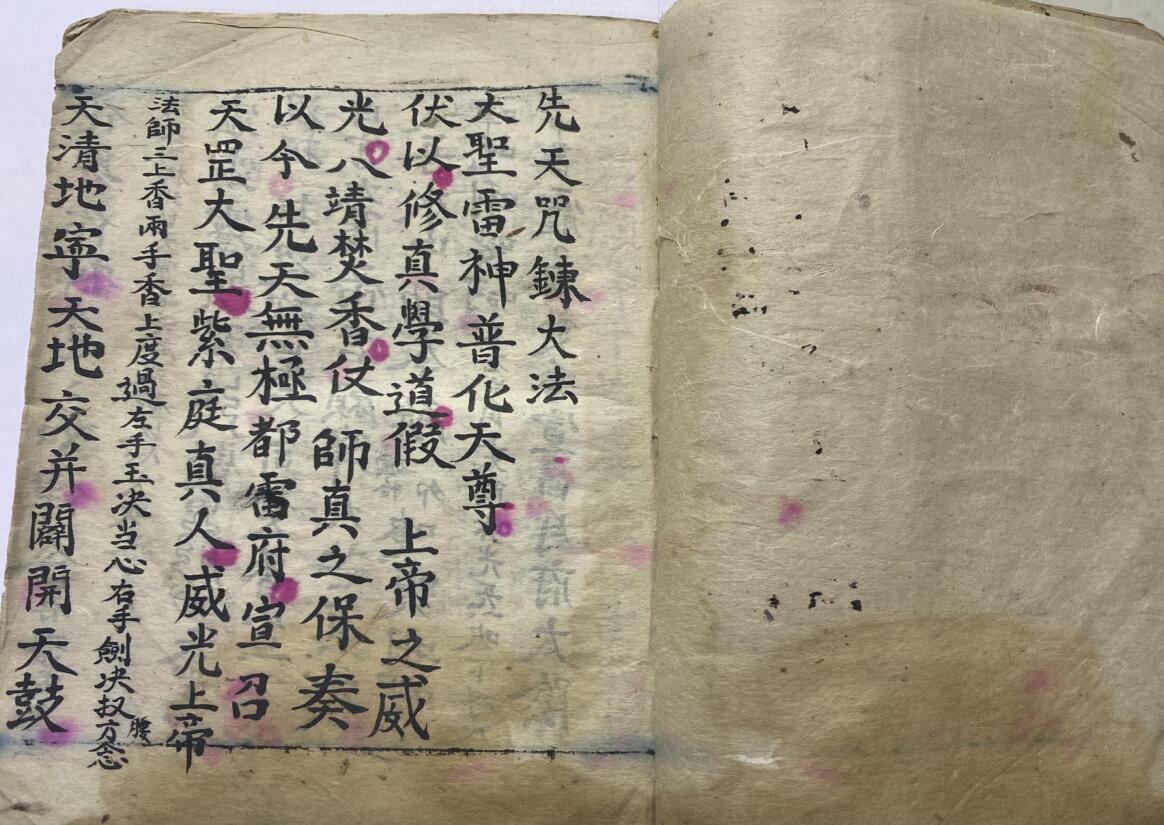 先天咒鍊大法
大聖雷神普化天尊
伏以修真學道假上帝之威
光八靖焚香仗師真之保奏
以今先天無極都雷府宣召
天罡大聖紫庭真人威光上帝
法師三上香兩手香上度過左手玉决当心右手劍决扠腰方念
天清地寧天地交并闢開天鼓